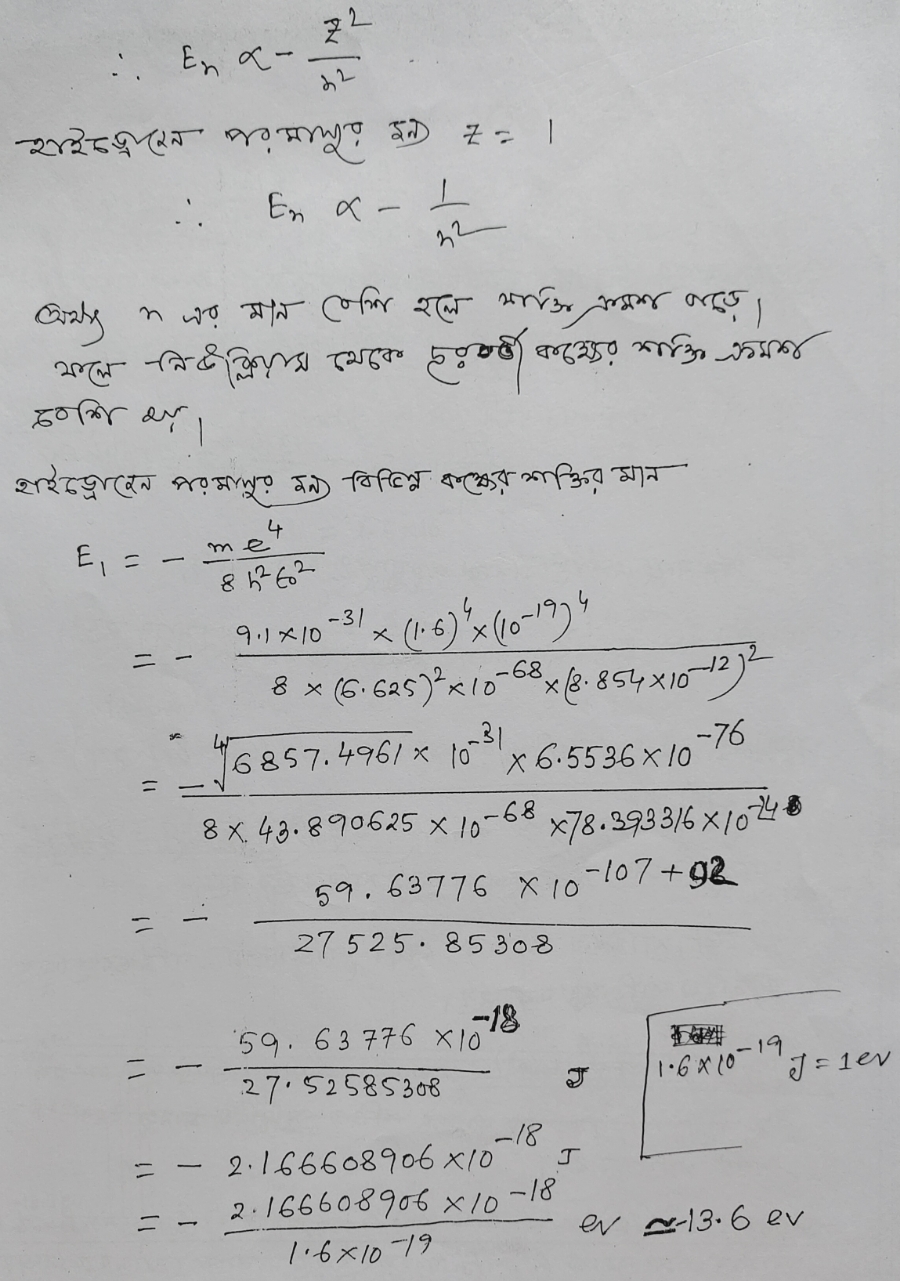 ∴ En ∝ - z²/n²
হাইড্রোজেন পরমাণুর জন্য z = 1
∴ En ∝ - 1/n²
অর্থাৎ n এর মান বেশি হলে শক্তি ক্রমশ বাড়ে।
ফলে নিউক্লিয়াস থেকে দূরবর্তী কক্ষের শক্তি ক্রমশ
বেশি হয়।
হাইড্রোজেন পরমাণুর জন্য বিভিন্ন কক্ষের শক্তির মান
E₁ = - me⁴/8h²ε₀²
= - 9.1×10⁻³¹ × (1.6)⁴ × (10⁻¹⁹)⁴ / 8 × (6.625)² × 10⁻⁶⁸ × (8.854×10⁻¹²)²
= - ∜6857.4961 × 10⁻³¹ × 6.5536 × 10⁻⁷⁶ / 8 × 43.890625 × 10⁻⁶⁸ × 78.393316 × 10⁻²⁴
= - 59.63776 × 10⁻¹⁰⁷⁺⁹² / 27525.85308
= - 59.63776 × 10⁻¹⁸ / 27.52585308 J
1.6×10⁻¹⁹ J = 1 ev
= - 2.166608906 × 10⁻¹⁸ J
= - 2.166608906 × 10⁻¹⁸ / 1.6×10⁻¹⁹ ev ≃ -13.6 ev